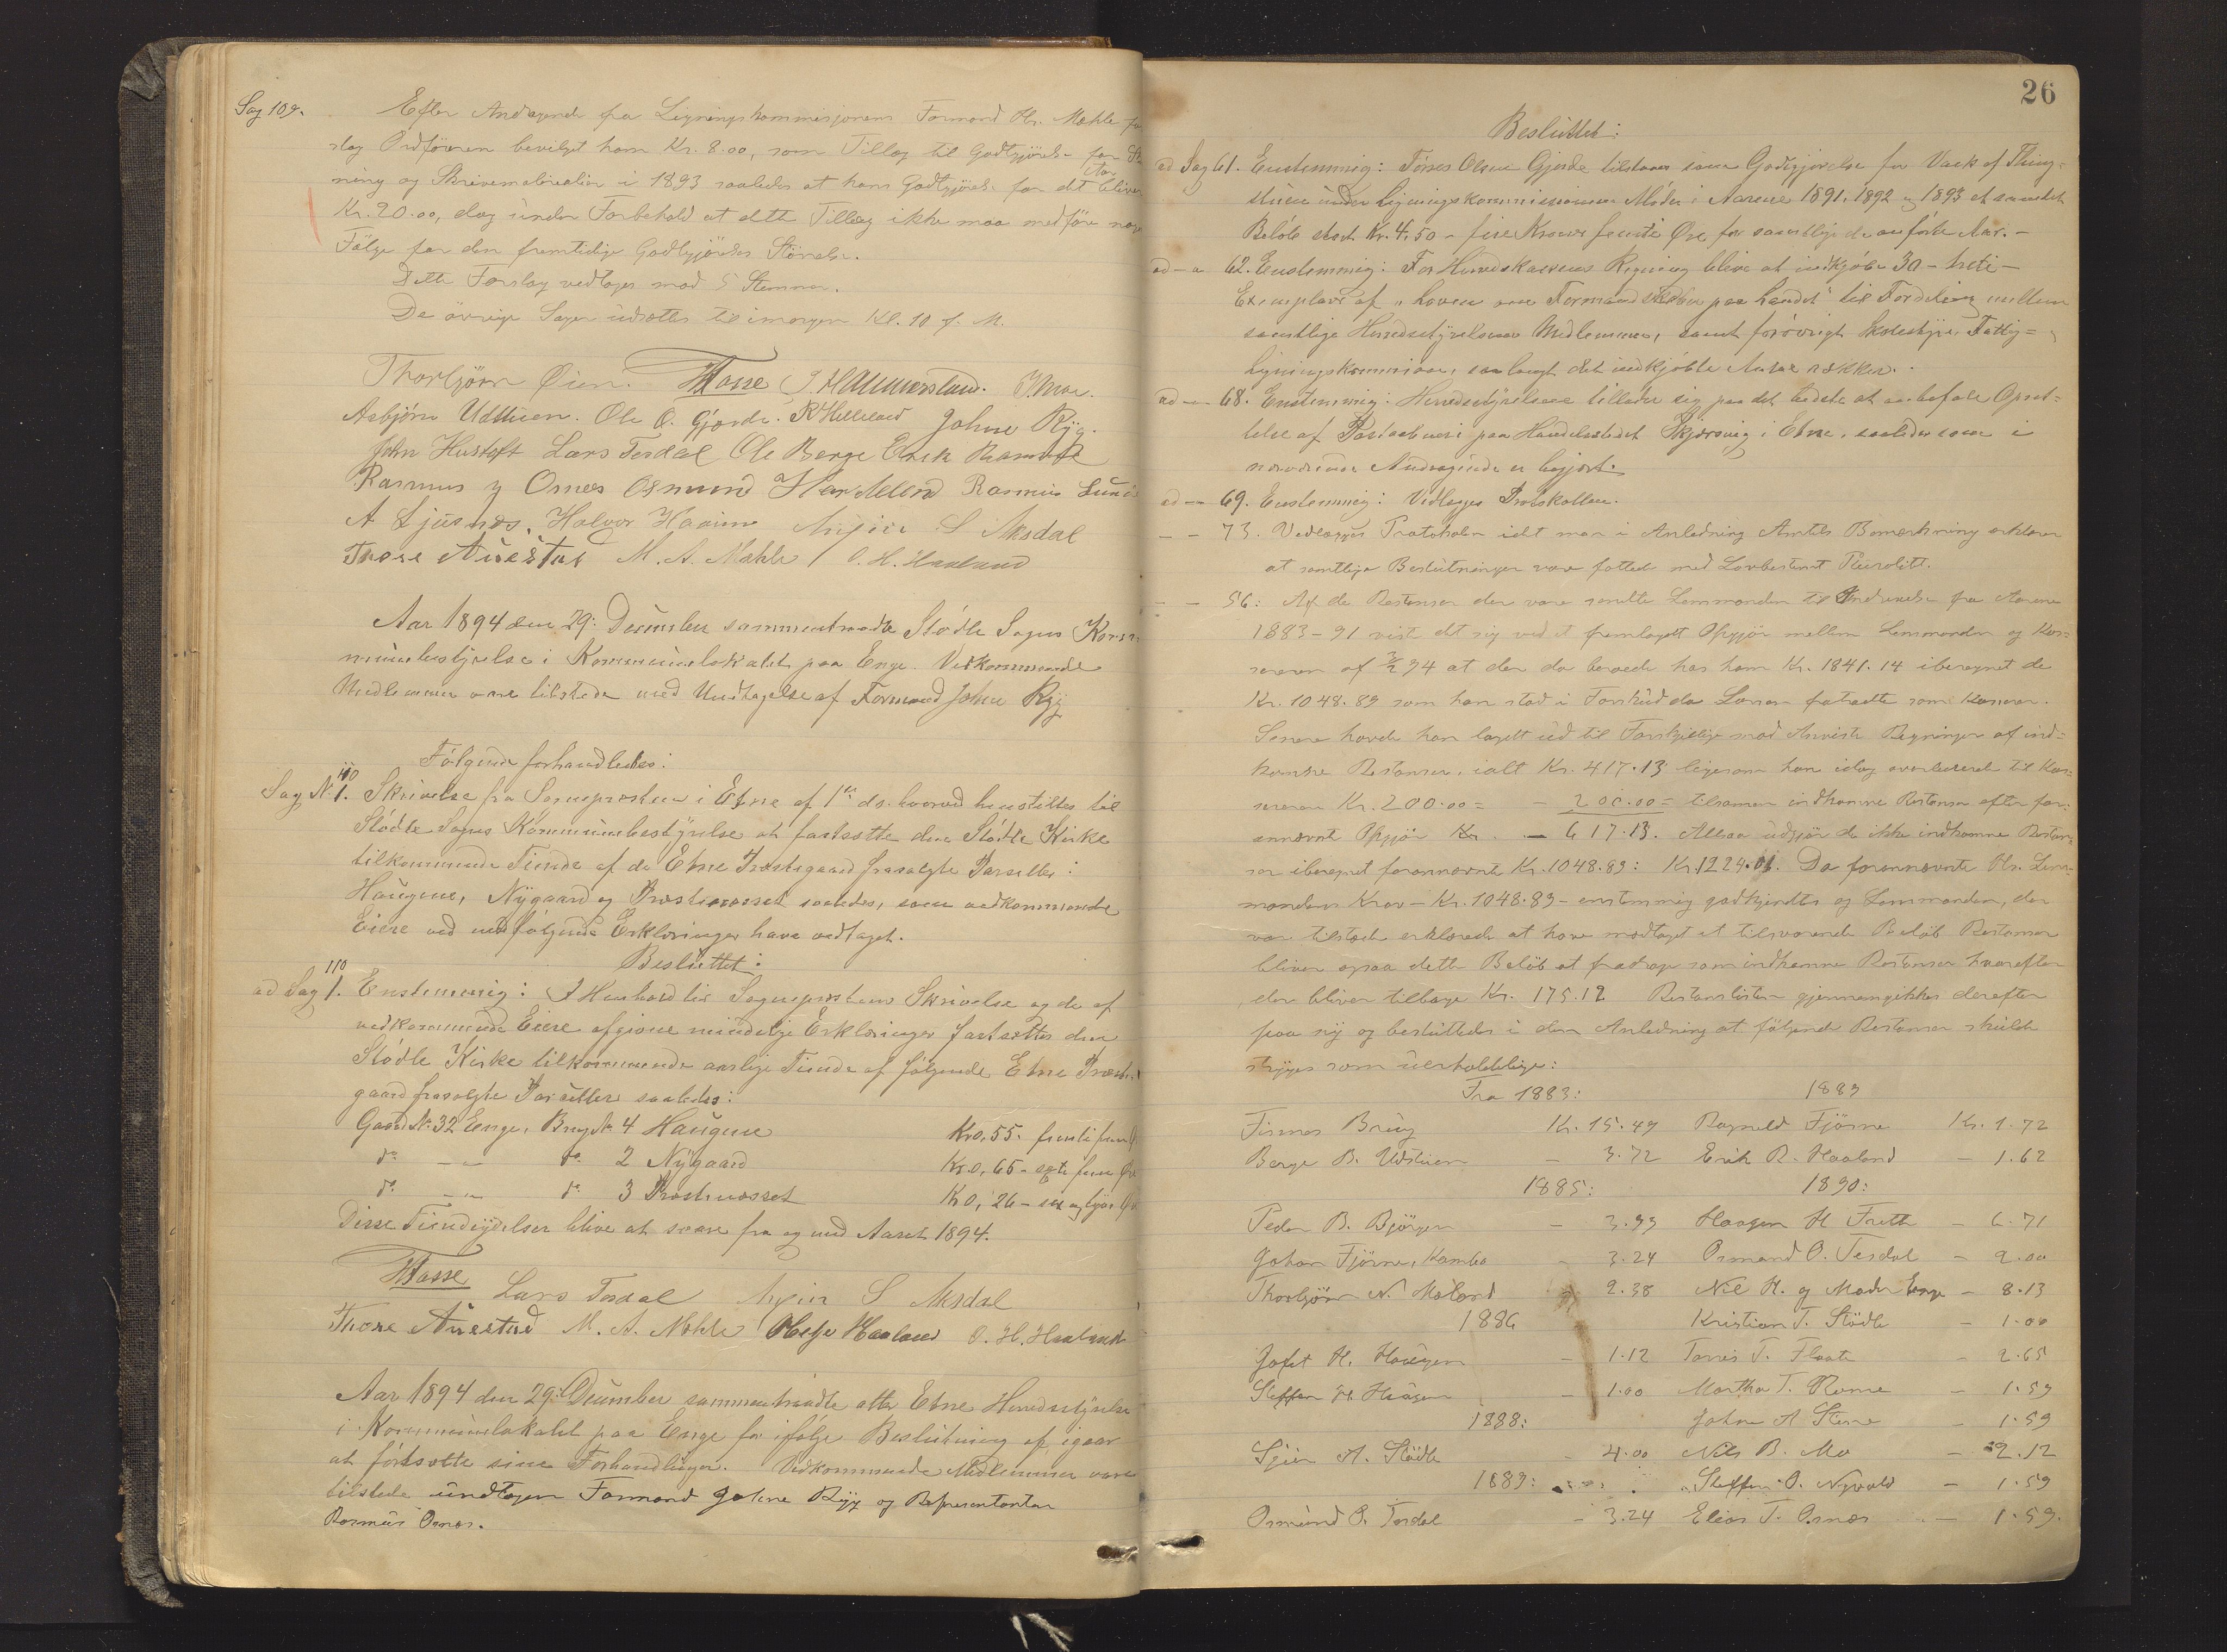 Sag 109. Efter Andragende fra Ligningskommisjonens Formand Hr. Mæhle fore-
slog Ordføreren bevilget ham Kr. 8.00, som Tillæg til Godtgjørelse for
ning og Skrivematerialier i 1893 saaledes at hans Godtgjørelse for det bliver
Kr. 20.00, dog under Forbehold at dette Tillæg ikke maa medføre
Følge for den fremtidige Godtgjørelses Størrelse.
Dette Forslag vedtoges mod 5 Stemmer.
De øvrige Sager udsættes til imorgen Kl. 10 f. M.
Thorbjørn Øien.
Asbjørn Udstuen. Ole O. Gjærde. Johne Ryg.
John Hustoft Lars Tesdal Ole Berge Erik
Rasmus Osnes Osmund Rasmus Lunde
A Ljusnæs. Halvor Haaim S Aksdal
Thore Auestad M. A. Mæhle O. H. Haaland
Aar 1894 den 29. December sammentraadte Stødle Sogns Kom-
munebestyrelse i Kommunelokalet paa Enge. Vedkommende
Medlemmer vare tilstede med Undtagelse af Formand Johne Ryg
Følgende forhandledes:
110
Sag N. 1. Skrivelse fra Sognepresten i Etne af 1ste ds. hvorved henstilles til
Stødle Sogns Kommunebestyrelse at fastsætte den Stødle Kirke
tilkommende Tiende af de Etne Præstegaard frasolgte Parseller:
Haugene, Nygaard og Præstenæsset saaledes, som vedkommende
Eiere ved medfølgende Erklæringer have vedtaget.
Besluttet:
110
ad Sag 1. Enstemmig: I Henhold til Sogneprestens Skrivelse og de af
vedkommende Eiere afgivne mindelige Erklæringer fastsættes den
Stødle Kirke tilkommende aarlige Tiende af følgende Etne Præste-
gaard frasolgte Parseller saaledes:
Gaard N. 32 Enge, Brug N. 4 Haugene Kr 0,55. femti fem Ø
do — do 2 Nygaard Kr. 0,65 - seksti fem Øre
do — do 3 Præstenæsset Kr 0,26 - sex og tyve Øre
Disse Tiendeydelser blive at svare fra og med Aaret 1894.
Lars Tesdal S Aksdal
Thore Auestad M. A. Mæhle Helge Haaland O. H. Haaland
Aar 1894 den 29. December sammentraadte atter Etne Herredsstyrelse
i Kommunelokalet paa Enge for ifølge Beslutning af igaar
at fortsætte sine Forhandlinger. Vedkommende Medlemmer vare
tilstede undtagen Formand Johne Ryg og Representanten
Rasmus Osnes.
26
Besluttet:
ad Sag 61. Enstemmig: Tørres Olsen Gjerde tilstaaes som Godtgjørelse for Vask af Thing-
stuen under Ligningskommissionens Møder i Aarene 1891, 1892 og 1893 et samlet
Beløb stort Kr. 4,50 - fire Kroner femti Øre for samtlige de anførte Aar. -
ad — 62. Enstemmig: For Herredskassens Regning blive at indkjøbe 30 - treti -
Exemplarer af "Loven om Formandskaber paa Landet" til Fordeling mellem
samtlige Herredsstyrelsens Medlemmer, samt forøvrigt Skolestyre, Fattig-
Ligningskommission, saa langt det indkjøbte Antal rækker.
ad — 68. Enstemmig: Herredsstyrelsen tillader sig paa det bedste at anbefale Opret-
telse af Postaabneri paa Handelsstedet Skjærsvig i Etne, saaledes som i
nærværende Andragende er begjært.
ad — 69. Enstemmig: Vedlægges Protokollen.
— — 73. Vedlægges Protokolen idet man i Anledning Amtets Bemærkning erklærer
at samtlige Beslutninger vare fattede med Lovbestemt Pluralitet.
— — 56: Af de Restanser der vare sendte Lensmanden til Inddrivelse fra Aarene
1883-91 vise det sig ved et fremlagt Opgjør mellem Lensmanden og Kas-
sereren af 94 at der da beroede hos ham Kr. 1841.14 iberegnet de
Kr. 1048.89 som han stod i Forskud da Larsen fratraadte som Kasserer.
Senere havde han lagt ud til Forskjellige mod Anviste Regninger af ind-
komne Restanser, ialt Kr. 417.13 ligesom han idag overleverede til Kas-
sereren Kr. 200.00 = — 200.00 = tilsammen indkomne Restanser efter for-
annævnte Opgjør Kr. — 617.13. Altsaa udgjør de ikke indkomne Restan-
ser iberegnet forannævnte Kr. 1048.89: Kr. 1224.01. Da forannævnte Hr. Lens-
mandens Krav - Kr. 1048.89 - enstemmig godkjendtes og Lensmanden, der
var tilstede erklærede at have modtaget et tilsvarende Beløb Restanser
bliver ogsaa dette Beløb at fradrage som indkomne Restanser hvorefter
der bliver tilbage Kr. 175.12 Restanslisten gjennemgikkes derefter
paa ny og besluttedes i den Anledning at følgende Restanser skulde
stryges som uerholdelige:
Fra 1883: 1889
Kr. 15.49 Ragneld Fjøsne Kr. 1.72
Berge B. Udstuen — 3.72 Erik R. Haaland — 1.62
1885: 1890:
Peder B. Bjørgen — 3.99 Haagen H Fretth — 6.71
Johan Fjøsne, — 3.24 Osmund O. Tesdal — 2.00
Thorbjørn N. Mæland 2.38 Nil H. og Moder Enge — 8.13
1886 Kristian T. Stødle — 1.00
Jofet H. Haugen — 1.12 Tørres T. Flaate — 2.65
Steffen H. Haugen — 1.00 Martha T. Rame — 1.59
1888: Johne A Stene — 1.59
A. Stødle — 4.00 Nils B. Mo — 2.12
1889: Steffen O. Nyvold — 1.59
Osmund O. Tesdal — 3.24 Elias T. Osnes — 1.59.